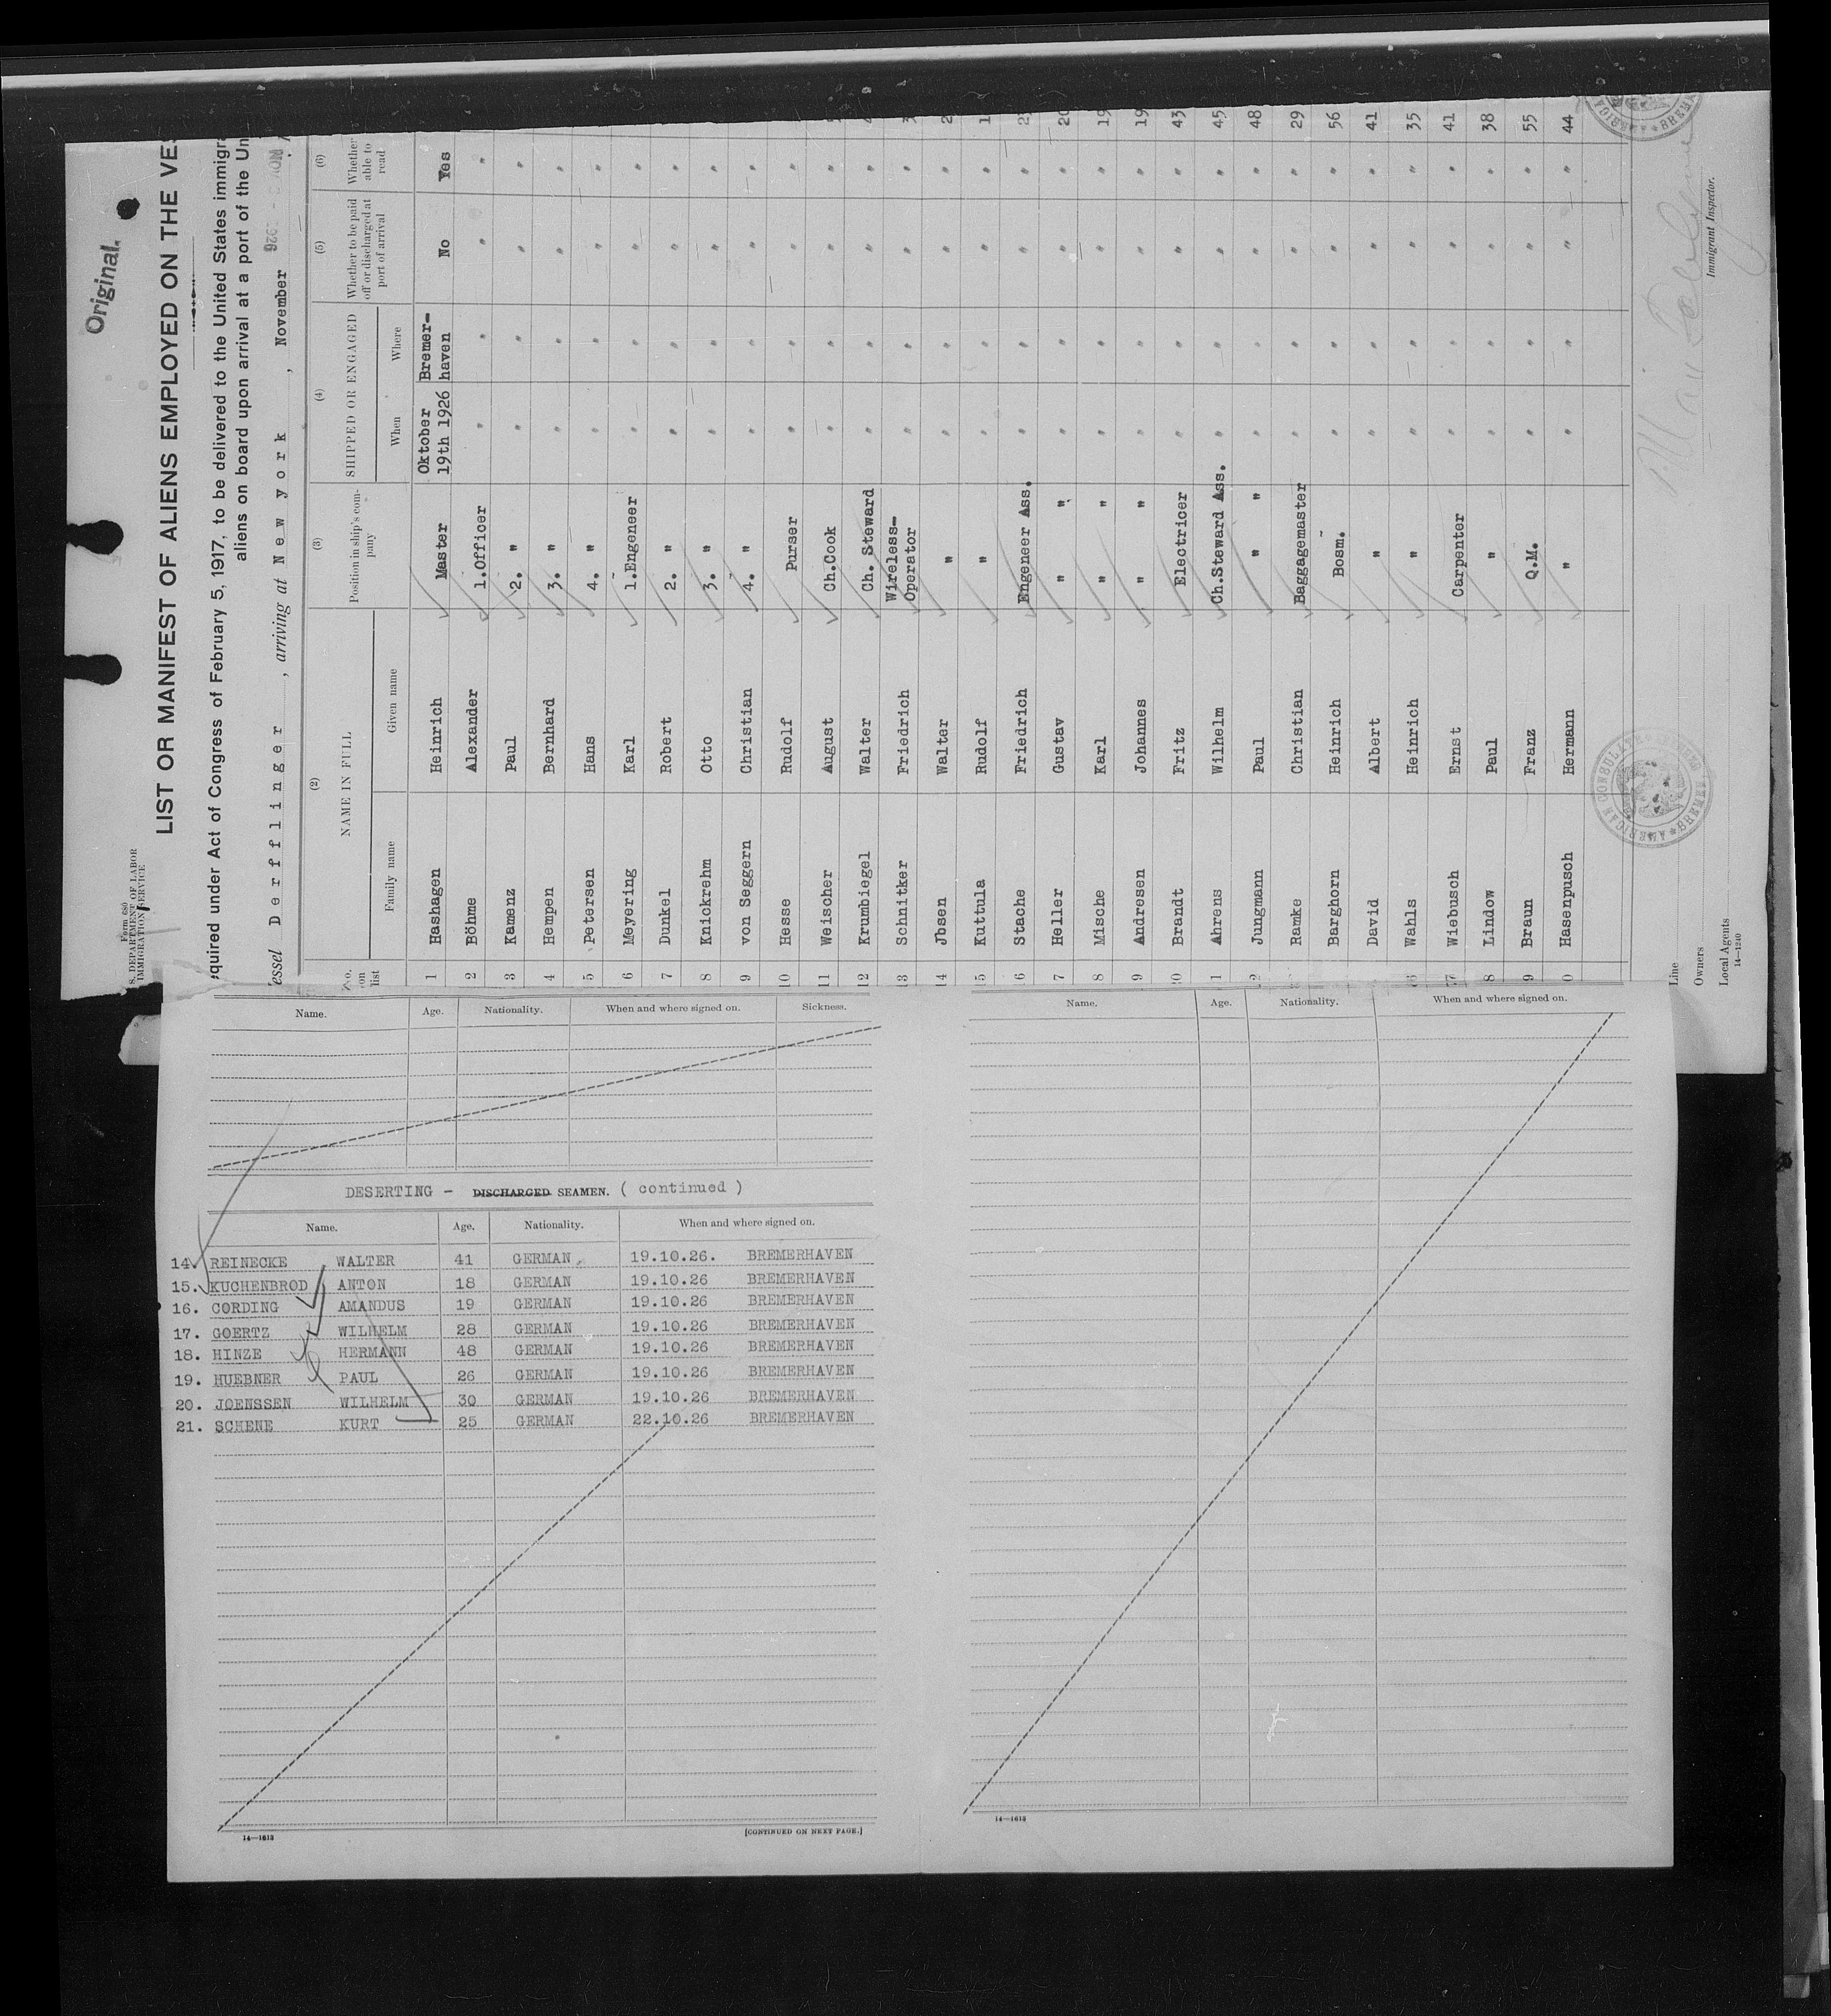 Original.
Form 680
S. DEPARTMENT OF LABOR
IMMIGRATION SERVICE
LIST OR MANIFEST OF ALIENS EMPLOYED ON THE VES
equired under Act of Congress of February 5, 1917, to be delivered to the United States immigr
aliens on board upon arrival at a port of the Un
essel Derfflinger , arriving at New york , November
No. on list (2) NAME IN FULL (3) Position in ship's company (4) SHIPPED OR ENGAGED (5) Whether to be paid off or discharged at port of arrival (6) Whether able to read
Family name Given name When Where
1 Hashagen Heinrich Master Oktober 19th 1926 Bremerhaven No Yes
2 Böhme Alexander 1.Officer " " " "
3 Kamenz Paul 2. " " " " "
4 Hempen Bernhard 3. " " " " "
5 Petersen Hans 4. " " " " "
6 Meyering Karl 1.Engeneer " " " "
7 Dunkel Robert 2. " " " " "
8 Knickrehm Otto 3. " " " " "
9 von Seggern Christian 4. " " " " "
10 Hesse Rudolf Purser " " " "
11 Weischer August Ch.Cook " " " "
12 Krumbiegel Walter Ch. Steward " " " "
13 Schnitker Friedrich Wireless-Operator " " " "
14 Jbsen Walter " " " " "
15 Kuttula Rudolf " " " " "
6 Stache Friedrich Engeneer Ass. " " " "
7 Heller Gustav " " " " " " 20
8 Mische Karl " " " " " " 19
9 Andresen Johannes " " " " " " 19
20 Brandt Fritz Electricer " " " " 43
1 Ahrens Wilhelm Ch.Steward Ass. " " " " 45
2 Jungmann Paul " " " " " " 48
Ramke Christian Baggagemaster " " " " 29
Barghorn Heinrich Bosm. " " " " 56
David Albert " " " " " 41
6 Wahls Heinrich " " " " " 35
7 Wiebusch Ernst Carpenter " " " " 41
8 Lindow Paul " " " " " 38
9 Braun Franz Q.M. " " " " 55
0 Hasenpusch Hermann " " " " " 44
Line
Owners
Local Agents
14—1240
Immigrant Inspector.
AMERICAN CONSULAR SERVICE BREMEN
Name. Age. Nationality. When and where signed on. Sickness.
DESERTING - DISCHARGED SEAMEN. ( continued )
Name. Age. Nationality. When and where signed on.
14. REINECKE WALTER 41 GERMAN 19.10.26. BREMERHAVEN
15. KUCHENBROD ANTON 18 GERMAN 19.10.26 BREMERHAVEN
16. CORDING AMANDUS 19 GERMAN 19.10.26 BREMERHAVEN
17. GOERTZ WILHELM 28 GERMAN 19.10.26 BREMERHAVEN
18. HINZE HERMANN 48 GERMAN 19.10.26 BREMERHAVEN
19. HUEBNER PAUL 26 GERMAN 19.10.26 BREMERHAVEN
20. JOENSSEN WILHELM 30 GERMAN 19.10.26 BREMERHAVEN
21. SCHENE KURT 25 GERMAN 22.10.26 BREMERHAVEN
14—1613
[CONTINUED ON NEXT PAGE.]
Name. Age. Nationality. When and where signed on.
14—1613